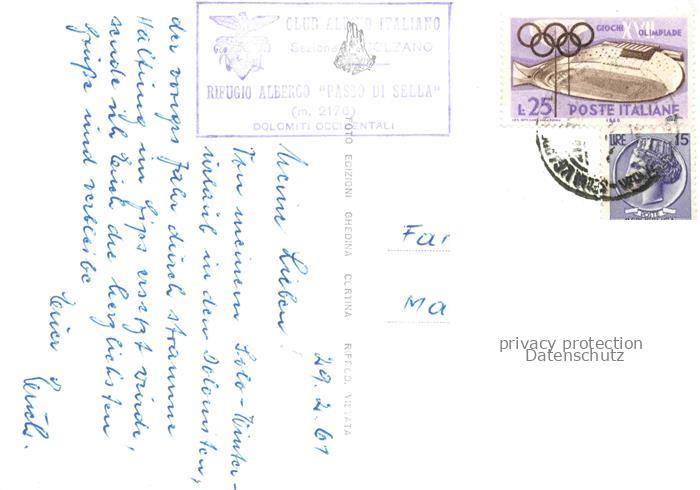 CLUB ALPINO ITALIANO
Sezione di BOLZANO
RIFUGIO ALBERGO "PASSO DI SELLA"
(m. 2176)
DOLOMITI OCCIDENTALI
GIOCHI XVII OLIMPIADE
L.25 POSTE ITALIANE
1960
LIRE 15
FOTO EDIZIONI GHEDINA CORTINA RIPROD. VIETATA
29.2.61
Meine Lieben!
Von meinem Solo-Winter-
urlaub in den Dolomiten,
der voriges Jahr durch stramme
Haltung im Gips ersetzt wurde,
sende ich Euch die herzlichsten
Grüße und verbleibe
Euer
Far
Ma
privacy protection
Datenschutz